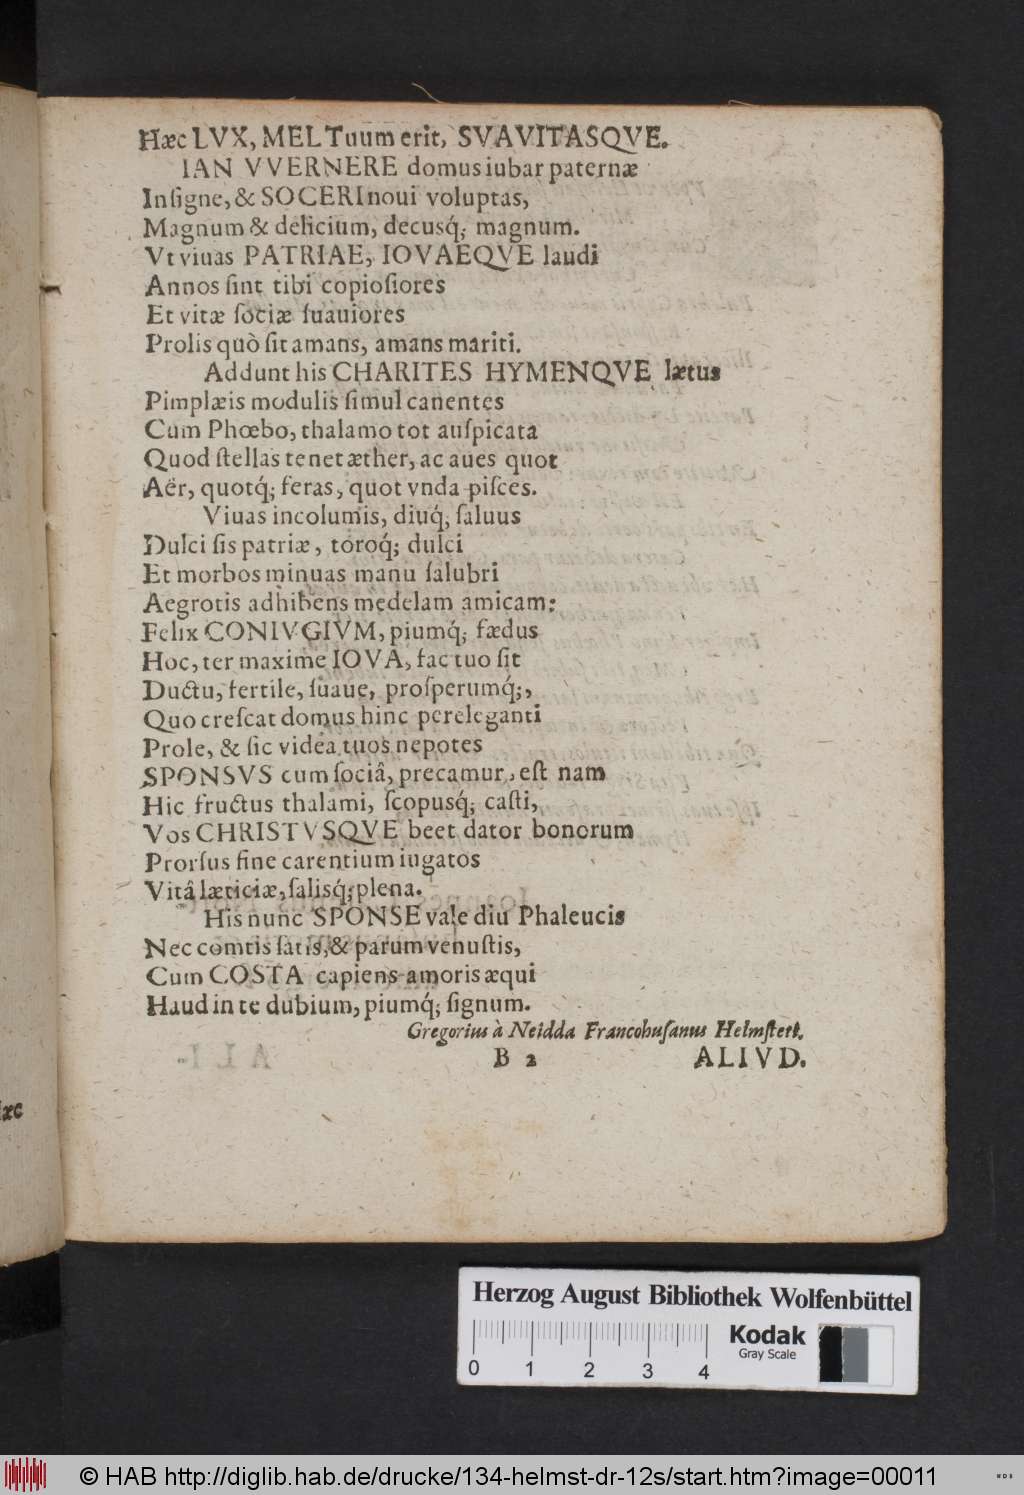 Hæc LVX, MEL Tuum erit, SVAVITASQVE.
IAN VVERNERE domus iubar paternæ
Inſigne, & SOCERI noui voluptas,
Magnum & delicium, decusq́; magnum.
Vt viuas PATRIAE, IOVAEQVE laudi
Annos ſint tibi copioſiores
Et vitæ ſociæ ſuauiores
Prolis quò ſit amans, amans mariti.
Addunt his CHARITES HYMENQVE lætus
Pimplæis modulis ſimul canentes
Cum Phœbo, thalamo tot auſpicata
Quod ſtellas tenet æther, ac aues quot
Aër, quotq́; feras, quot vnda piſces.
Viuas incolumis, diuq́; ſaluus
Dulci ſis patriæ, toroq́; dulci
Et morbos minuas manu ſalubri
Aegrotis adhibens medelam amicam:
Felix CONIVGIVM, piumq́; fædus
Hoc, ter maxime IOVA, fac tuo ſit
Ductu, fertile, ſuaue, proſperumq́;,
Quo creſcat domus hinc pereleganti
Prole, & ſic videa tuos nepotes
SPONSVS cum ſociâ, precamur, eſt nam
Hic fructus thalami, ſcopusq́; caſti,
Vos CHRISTVSQVE beet dator bonorum
Prorſus fine carentium iugatos
Vitâ læticiæ, ſalisq́; plena.
His nunc SPONSE vale diu Phaleucis
Nec comtis ſatis, & parum venuſtis,
Cum COSTA capiens amoris æqui
Haud in te dubium, piumq́; ſignum.
Gregorius à Neidda Francohuſanus Helmſtett.
B 2 ALIVD.
æc
Herzog August Bibliothek Wolfenbüttel
Kodak
Gray Scale
0 1 2 3 4
© HAB http://diglib.hab.de/drucke/134-helmst-dr-12s/start.htm?image=00011